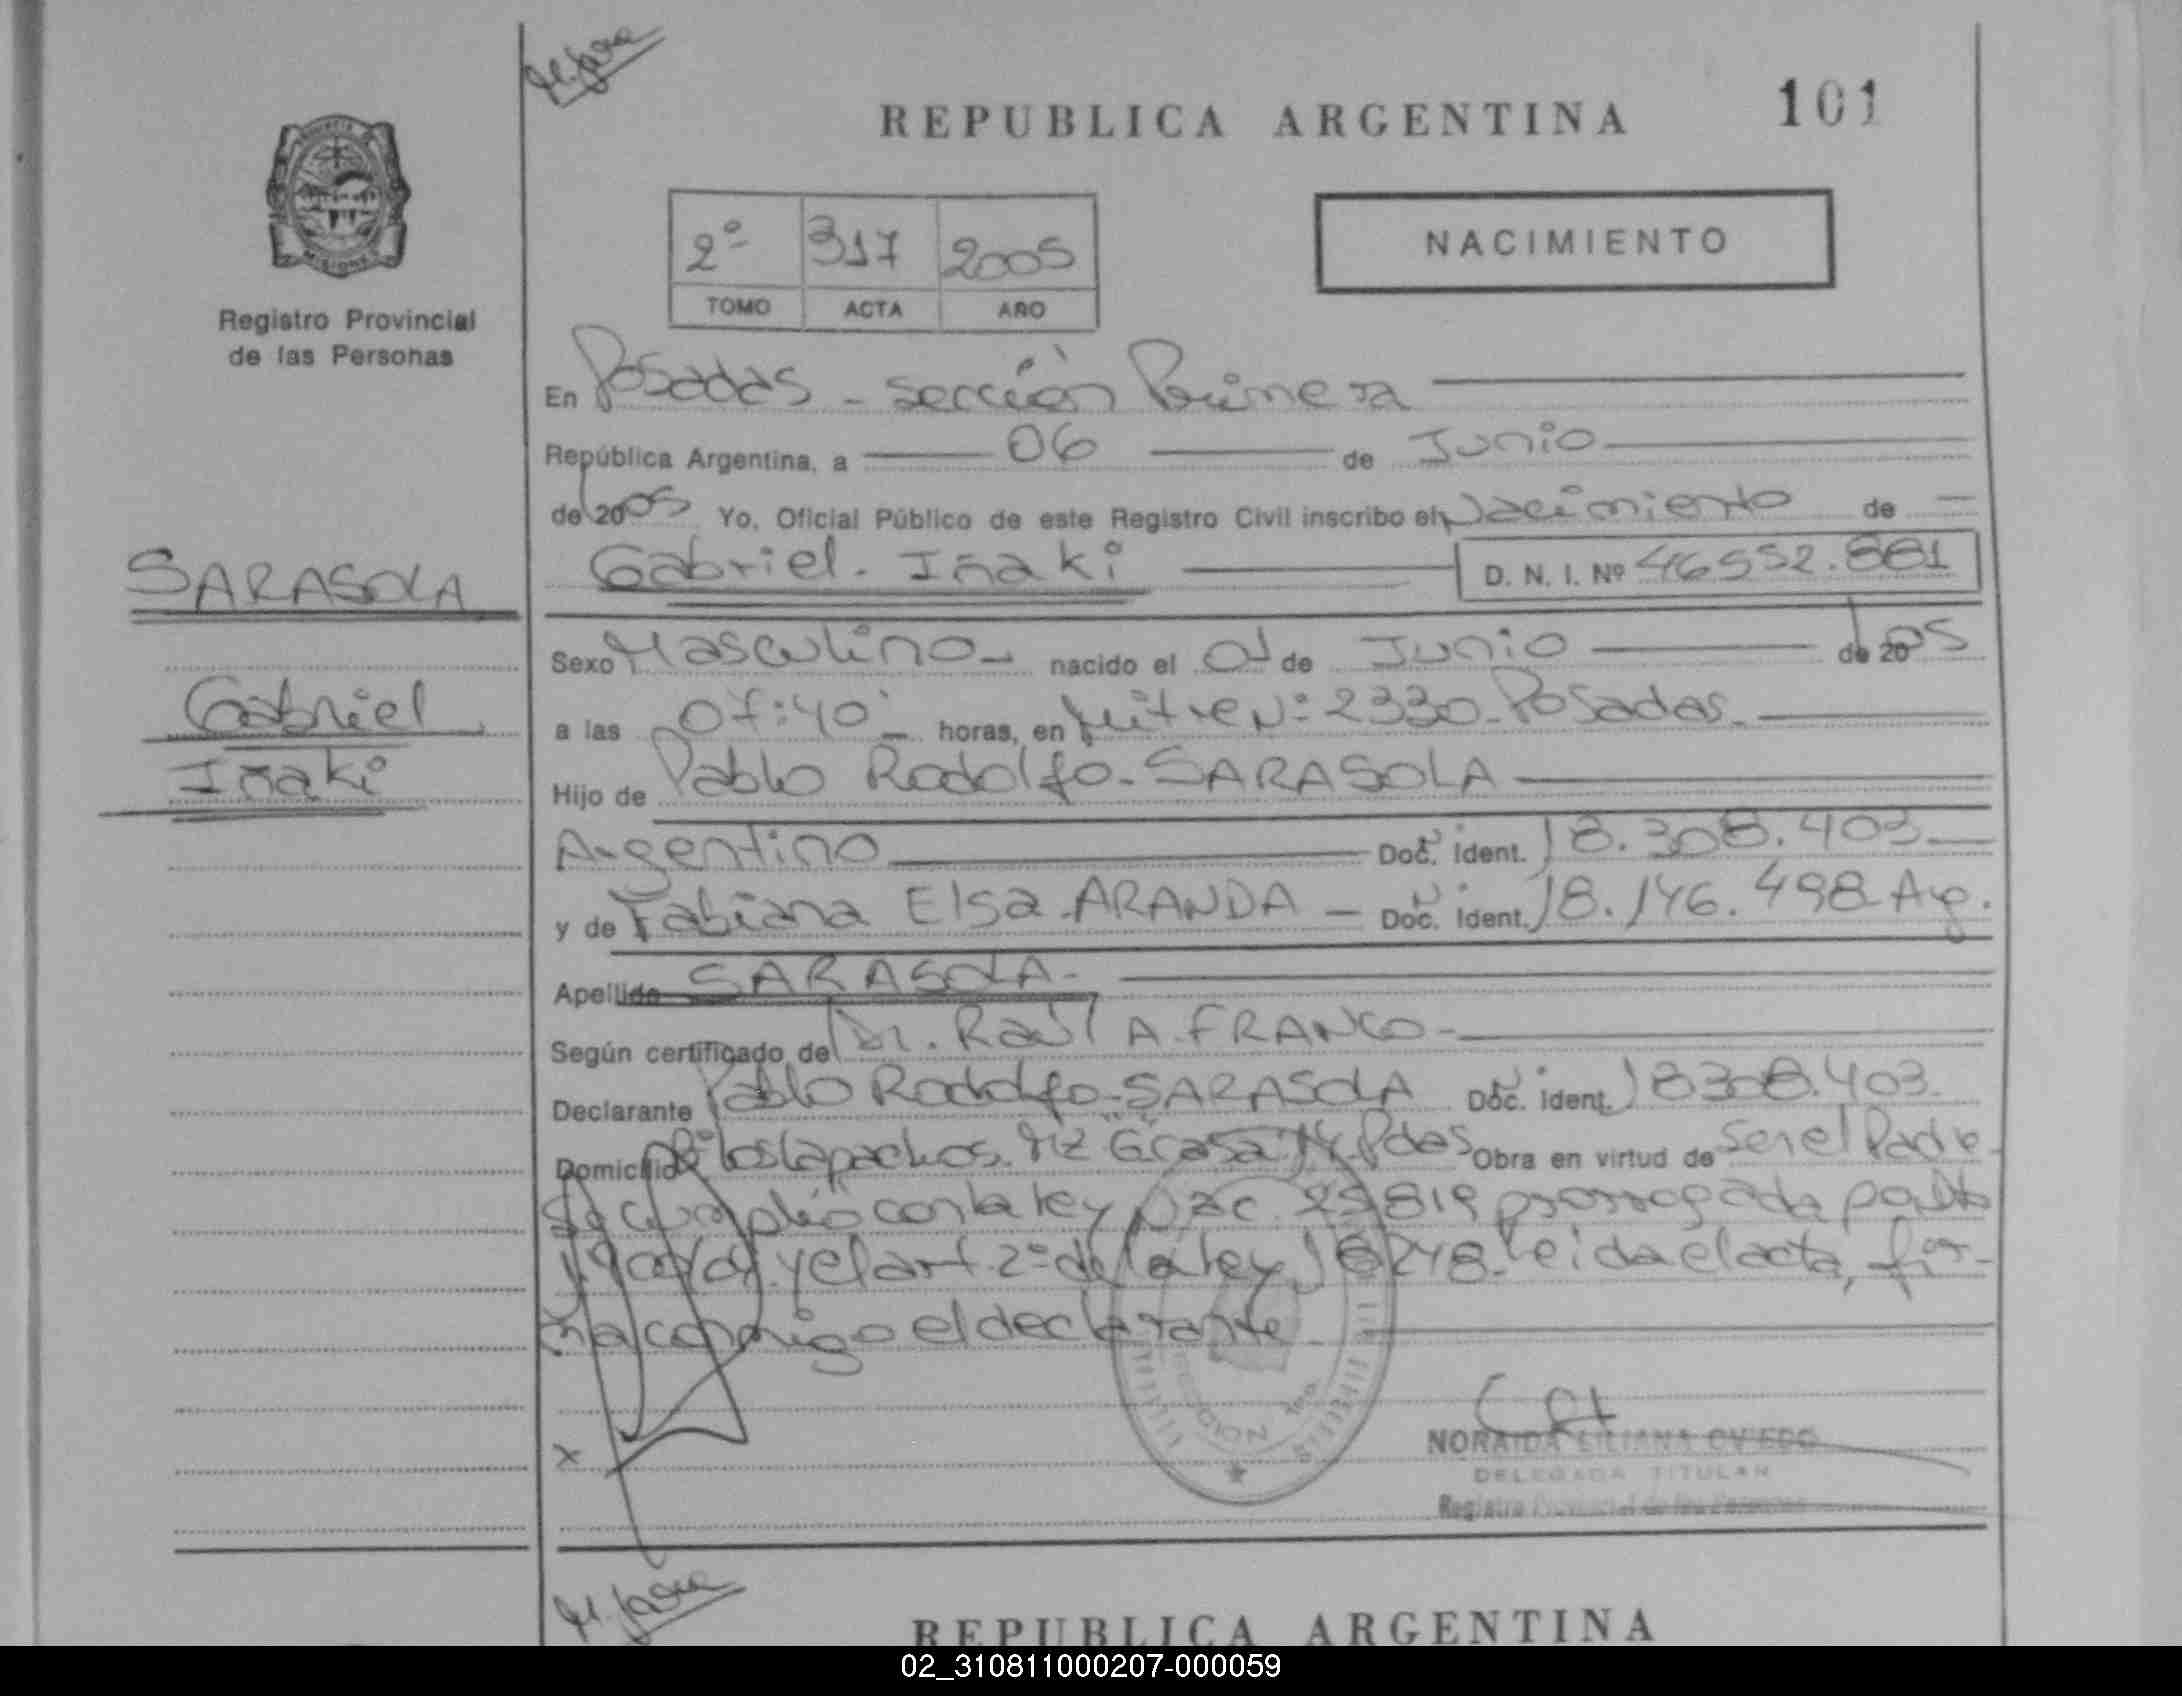 REPUBLICA ARGENTINA
101
PROVINCIA
MISIONES
Registro Provincial
de las Personas
2º 317 2005
TOMO ACTA AÑO
NACIMIENTO
En Posadas - sección Primera
República Argentina, a 06 de Junio
de 2005 Yo, Oficial Público de este Registro Civil inscribo el Nacimiento de
Gabriel Iñaki D. N. I. Nº 46552.881
SARASOLA
Gabriel
Iñaki
Sexo Masculino - nacido el 01 de Junio de 2005
a las 07:40 horas, en Mitre Nº 2330 - Posadas.
Hijo de Pablo Rodolfo - SARASOLA
Argentino Doc. Ident. 18.308.403
y de Fabiana Elsa - ARANDA - Doc. Ident. 18.146.498 Arg.
Apellido SARASOLA -
Según certificado de Dr. Raúl A. FRANCO -
Declarante Pablo Rodolfo - SARASOLA Doc. Ident. 18308.403
Domicilio Bº los lapachos. Mz G casa 14. Pdas Obra en virtud de ser el Padre
Se cumplió con la ley Nac. 25819 prorrogada por
y el art. 2º de la ley 18248. Leida el acta, fir-
ma conmigo el declarante
X
NORAIDA LILIANA OVIEDO
DELEGADA TITULAR
Registro Provincial de las Personas
REPUBLICA ARGENTINA
02_310811000207-000059